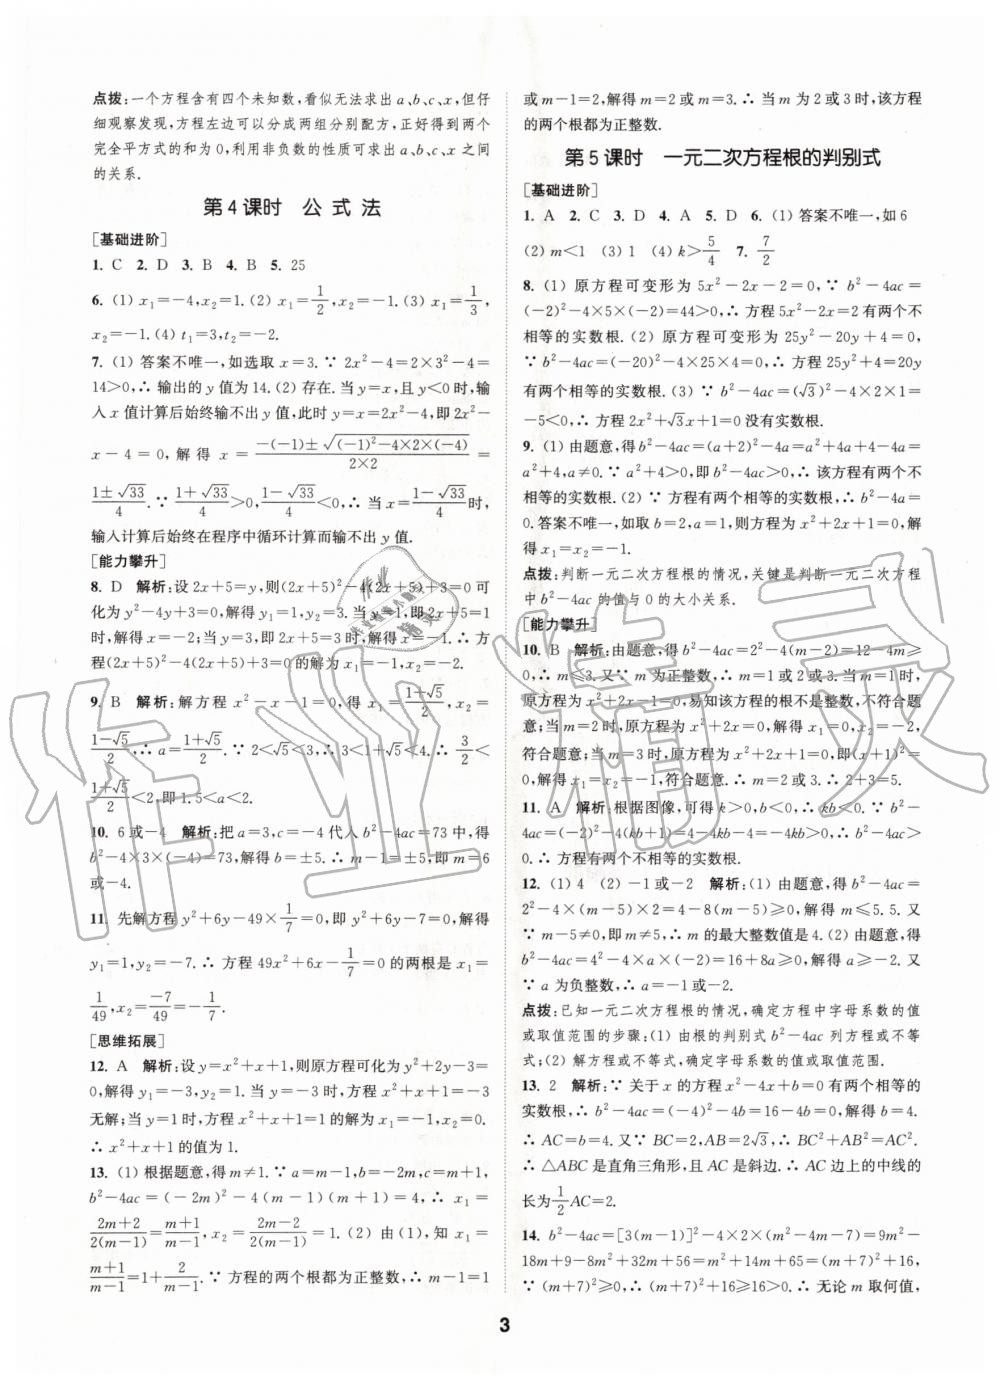 点拨:一个方程含有四个未知数,看似无法求出 a、b、c、x,但仔
细观察发现,方程左边可以分成两组分别配方,正好得到两个
完全平方式的和为 0,利用非负数的性质可求出 a、b、c、x 之间
的关系.
第 4 课时 公 式 法
[基础进阶]
1. C 2. D 3. B 4. B 5. 25
6. (1) x₁=-4,x₂=1. (2) x₁=1/2,x₂=-1. (3) x₁=1/3,
x₂=-1. (4) t₁=3,t₂=-2.
7. (1) 答案不唯一,如选取 x=3. ∵ 2x²-4=2×3²-4=
14>0,∴ 输出的 y 值为 14. (2) 存在. 当 y=x,且 y<0 时,输
入 x 值计算后始终输不出 y 值,此时 y=x=2x²-4,即 2x²-
x-4=0,解 得 x=(-(-1)±√((-1)²-4×2×(-4)))/(2×2)=
(1±√33)/4. ∵ (1+√33)/4>0,(1-√33)/4<0,∴ 当 x=(1-√33)/4时,
输入计算后始终在程序中循环计算而输不出 y 值.
[能力攀升]
8. D 解析:设 2x+5=y,则(2x+5)²-4(2x+5)+3=0 可
化为 y²-4y+3=0,解得 y₁=1,y₂=3. 当 y=1,即 2x+5=1
时,解得 x=-2;当 y=3,即 2x+5=3 时,解得 x=-1. ∴ 方
程(2x+5)²-4(2x+5)+3=0 的解为 x₁=-1,x₂=-2.
9. B 解析:解方程 x²-x-1=0,得 x₁=(1+√5)/2,x₂=
(1-√5)/2,∴ a=(1+√5)/2. ∵ 2<√5<3,∴ 3<1+√5<4. ∴ 3/2<
(1+√5)/2<2,即 1.5<a<2.
10. 6 或-4 解析:把 a=3,c=-4 代入 b²-4ac=73 中,得
b²-4×3×(-4)=73,解得 b=±5. ∴ m-1=±5,即 m=6
或-4.
11. 先解方程 y²+6y-49×1/7=0,即 y²+6y-7=0,解得
y₁=1,y₂=-7. ∴ 方程 49x²+6x-1/7=0 的两根是 x₁=
1/49,x₂=-7/49=-1/7.
[思维拓展]
12. A 解析:设 y=x²+x+1,则原方程可化为 y²+2y-3=
0,解得 y₁=-3,y₂=1. 当 y=-3 时,方程 x²+x+1=-3
无解;当 y=1 时,方程 x²+x+1=1 的解为 x₁=-1,x₂=0.
∴ x²+x+1 的值为 1.
13. (1) 根据题意,得 m≠1. ∵ a=m-1,b=-2m,c=m+1,
b²-4ac=(-2m)²-4(m-1)(m+1)=4,∴ x₁=
(2m+2)/(2(m-1))=(m+1)/(m-1),x₂=(2m-2)/(2(m-1))=1. (2) 由(1),知 x₁=
(m+1)/(m-1)=1+2/(m-1). ∵ 方程的两个根都为正整数,∴ m-1=1
或 m-1=2,解得 m=2 或 m=3. ∴ 当 m 为 2 或 3 时,该方程
的两个根都为正整数.
第 5 课时 一元二次方程根的判别式
[基础进阶]
1. A 2. C 3. D 4. A 5. D 6. (1) 答案不唯一,如 6
(2) m<1 (3) 1 (4) k>5/4 7. 7/2
8. (1) 原方程可变形为 5x²-2x-2=0,∵ b²-4ac=
(-2)²-4×5×(-2)=44>0,∴ 方程 5x²-2x=2 有两个不
相等的实数根. (2) 原方程可变形为 25y²-20y+4=0,
∵ b²-4ac=(-20)²-4×25×4=0,∴ 方程 25y²+4=20y
有两个相等的实数根. (3) ∵ b²-4ac=(√3)²-4×2×1=
-5<0,∴ 方程 2x²+√3x+1=0 没有实数根.
9. (1) 由题意,得 b²-4ac=(a+2)²-4a=a²+4a+4-4a=
a²+4,a≠0. ∵ a²+4>0,即 b²-4ac>0,∴ 该方程有两个不
相等的实数根. (2) ∵ 方程有两个相等的实数根,∴ b²-4a=
0. 答案不唯一,如取 b=2,a=1,则方程为 x²+2x+1=0,解
得 x₁=x₂=-1.
点拨:判断一元二次方程根的情况,关键是判断一元二次方程
中 b²-4ac 的值与 0 的大小关系.
[能力攀升]
10. B 解析:由题意,得 b²-4ac=2²-4(m-2)=12-4m≥
0,∴ m≤3. 又∵ m 为正整数,∴ m=1 或 2 或 3. 当 m=1 时,
原方程为 x²+2x-1=0,易知该方程的根不是整数,不符合题
意;当 m=2 时,原方程为 x²+2x=0,解得 x₁=0,x₂=-2,
符合题意;当 m=3 时,原方程为 x²+2x+1=0,即(x+1)²=
0,解得 x₁=x₂=-1,符合题意. ∴ m=2 或 3. ∴ 2+3=5.
11. A 解析:根据图像,可得 k>0,b<0,∴ kb<0. ∵ b²-
4ac=(-2)²-4(kb+1)=4-4kb-4=-4kb>0,∴ b²-4ac>
0. ∴ 方程有两个不相等的实数根.
12. (1) 4 (2) -1 或-2 解析:(1) 由题意,得 b²-4ac=
2²-4×(m-5)×2=4-8(m-5)≥0,解得 m≤5.5. 又
∵ m-5≠0,即 m≠5,∴ m 的最大整数值是 4. (2) 由题意,得
b²-4ac=4²-4×a×(-2)=16+8a≥0,解得 a≥-2. 又
∵ a 为负整数,∴ a=-1 或-2.
点拨:已知一元二次方程根的情况,确定方程中字母系数的值
或取值范围的步骤:(1) 由根的判别式 b²-4ac 列方程或不等
式;(2) 解方程或不等式,确定字母系数的值或取值范围.
13. 2 解析:∵ 关于 x 的方程 x²-4x+b=0 有两个相等的
实数根,∴ b²-4ac=(-4)²-4b=16-4b=0,解得 b=4.
∴ AC=b=4. 又∵ BC=2,AB=2√3,∴ BC²+AB²=AC².
∴ △ABC 是直角三角形,且 AC 是斜边. ∴ AC 边上的中线的
长为1/2AC=2.
14. b²-4ac=[3(m-1)]²-4×2(m²-4m-7)=9m²-
18m+9-8m²+32m+56=m²+14m+65=(m+7)²+16,
∵ (m+7)²≥0,∴ (m+7)²+16≥16>0. ∴ 无论 m 取何值,
3
作业精灵